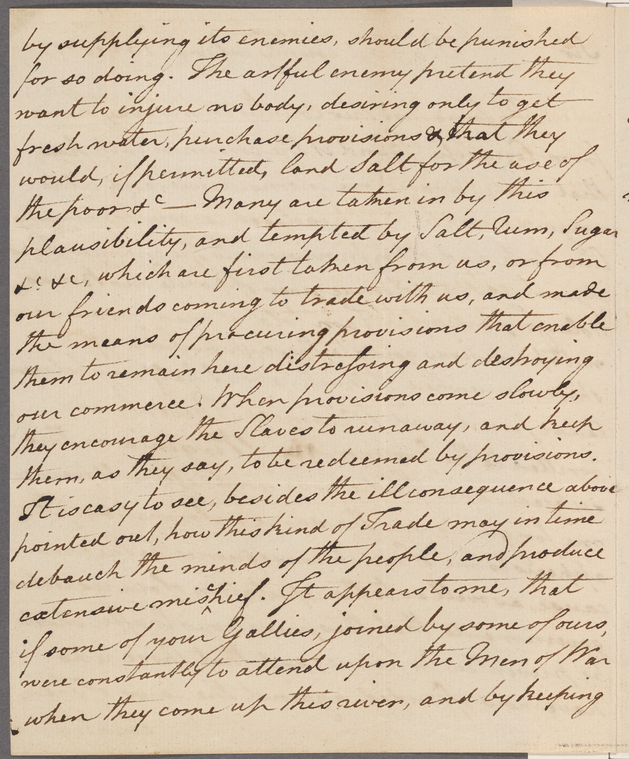 by supplying its enemies, should be punished
for so doing. The artful enemy pretend they
want to injure no body, desiring only to get
fresh water, purchase provisions & that they
would, if permitted, land Salt for the use of
the poor &c — Many are taken in by this
plausibility, and tempted by Salt, Rum, Sugar
&c &c, which are first taken from us, or from
our friends coming to trade with us, and made
the means of procuring provisions that enable
them to remain here distressing and destroying
our commerce. When provisions come slowly,
they encourage the Slaves to runaway, and keep
them, as they say, to be redeemed by provisions.
It is easy to see, besides the ill consequence above
pointed out, how this kind of Trade may in time
debauch the minds of the people, and produce
extensive mischief. It appears to me, that
if some of your Gallies, joined by some of ours,
were constantly to attend upon the Men of War
when they come up this river, and by keeping